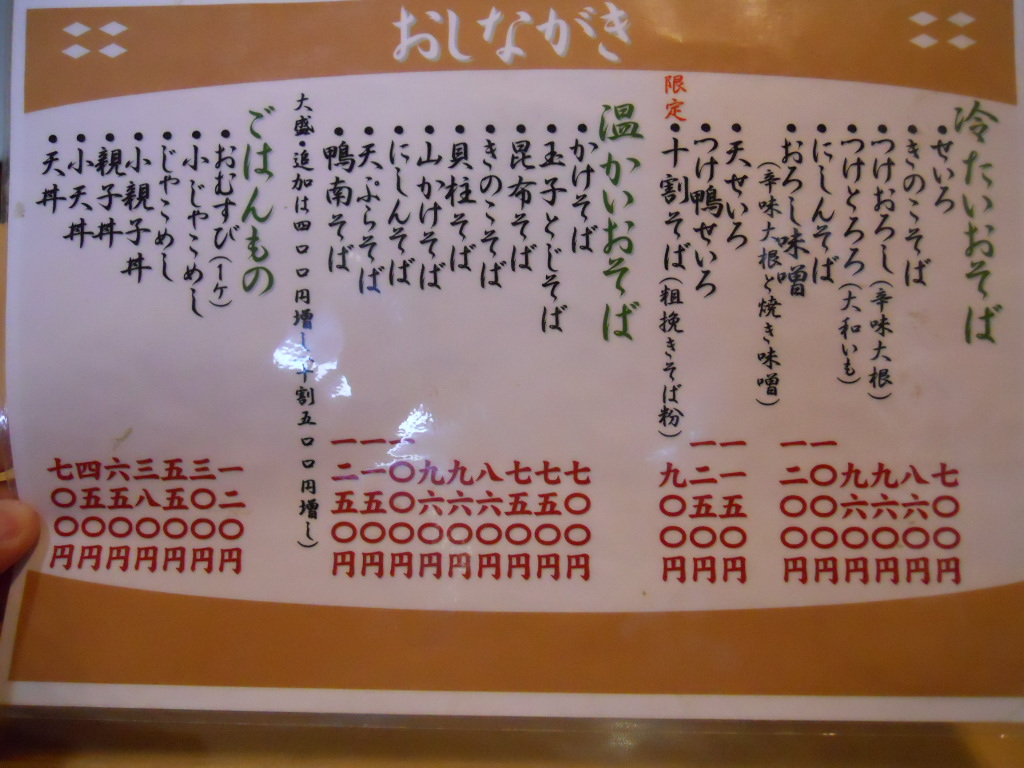 おしながき
冷たいおそば
・せいろ 七〇〇円
・きのこそば 八六〇円
・つけおろし(辛味大根) 九六〇円
・つけとろろ(大和いも) 九六〇円
・にしんそば 一〇〇〇円
・おろし味噌 一二〇〇円
(辛味大根と焼き味噌)
・天せいろ 一一五〇円
・つけ鴨せいろ 一二五〇円
限定・十割そば(粗挽きそば粉) 九〇〇円
温かいおそば
・かけそば 七〇〇円
・玉子とじそば 七五〇円
・昆布そば 七五〇円
・きのこそば 八六〇円
・貝柱そば 九六〇円
・山かけそば 九六〇円
・にしんそば 一〇〇〇円
・天ぷらそば 一一五〇円
・鴨南そば 一二五〇円
大盛・追加は四〇〇円増し(十割五〇〇円増し)
ごはんもの
・おむすび(一ケ) 一二〇円
・小じゃこめし 三〇〇円
・じゃこめし 五五〇円
・小親子丼 三八〇円
・親子丼 六五〇円
・小天丼 四五〇円
・天丼 七〇〇円